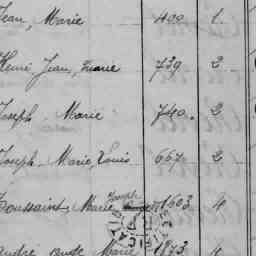 Jean, Marie 400 1
Henri Jean, Marie 739 2
Joseph Marie 740 2
Joseph Marie, Louis 667 2
Toussaint Marie Joseph 1603 4
André Marie 1873 4